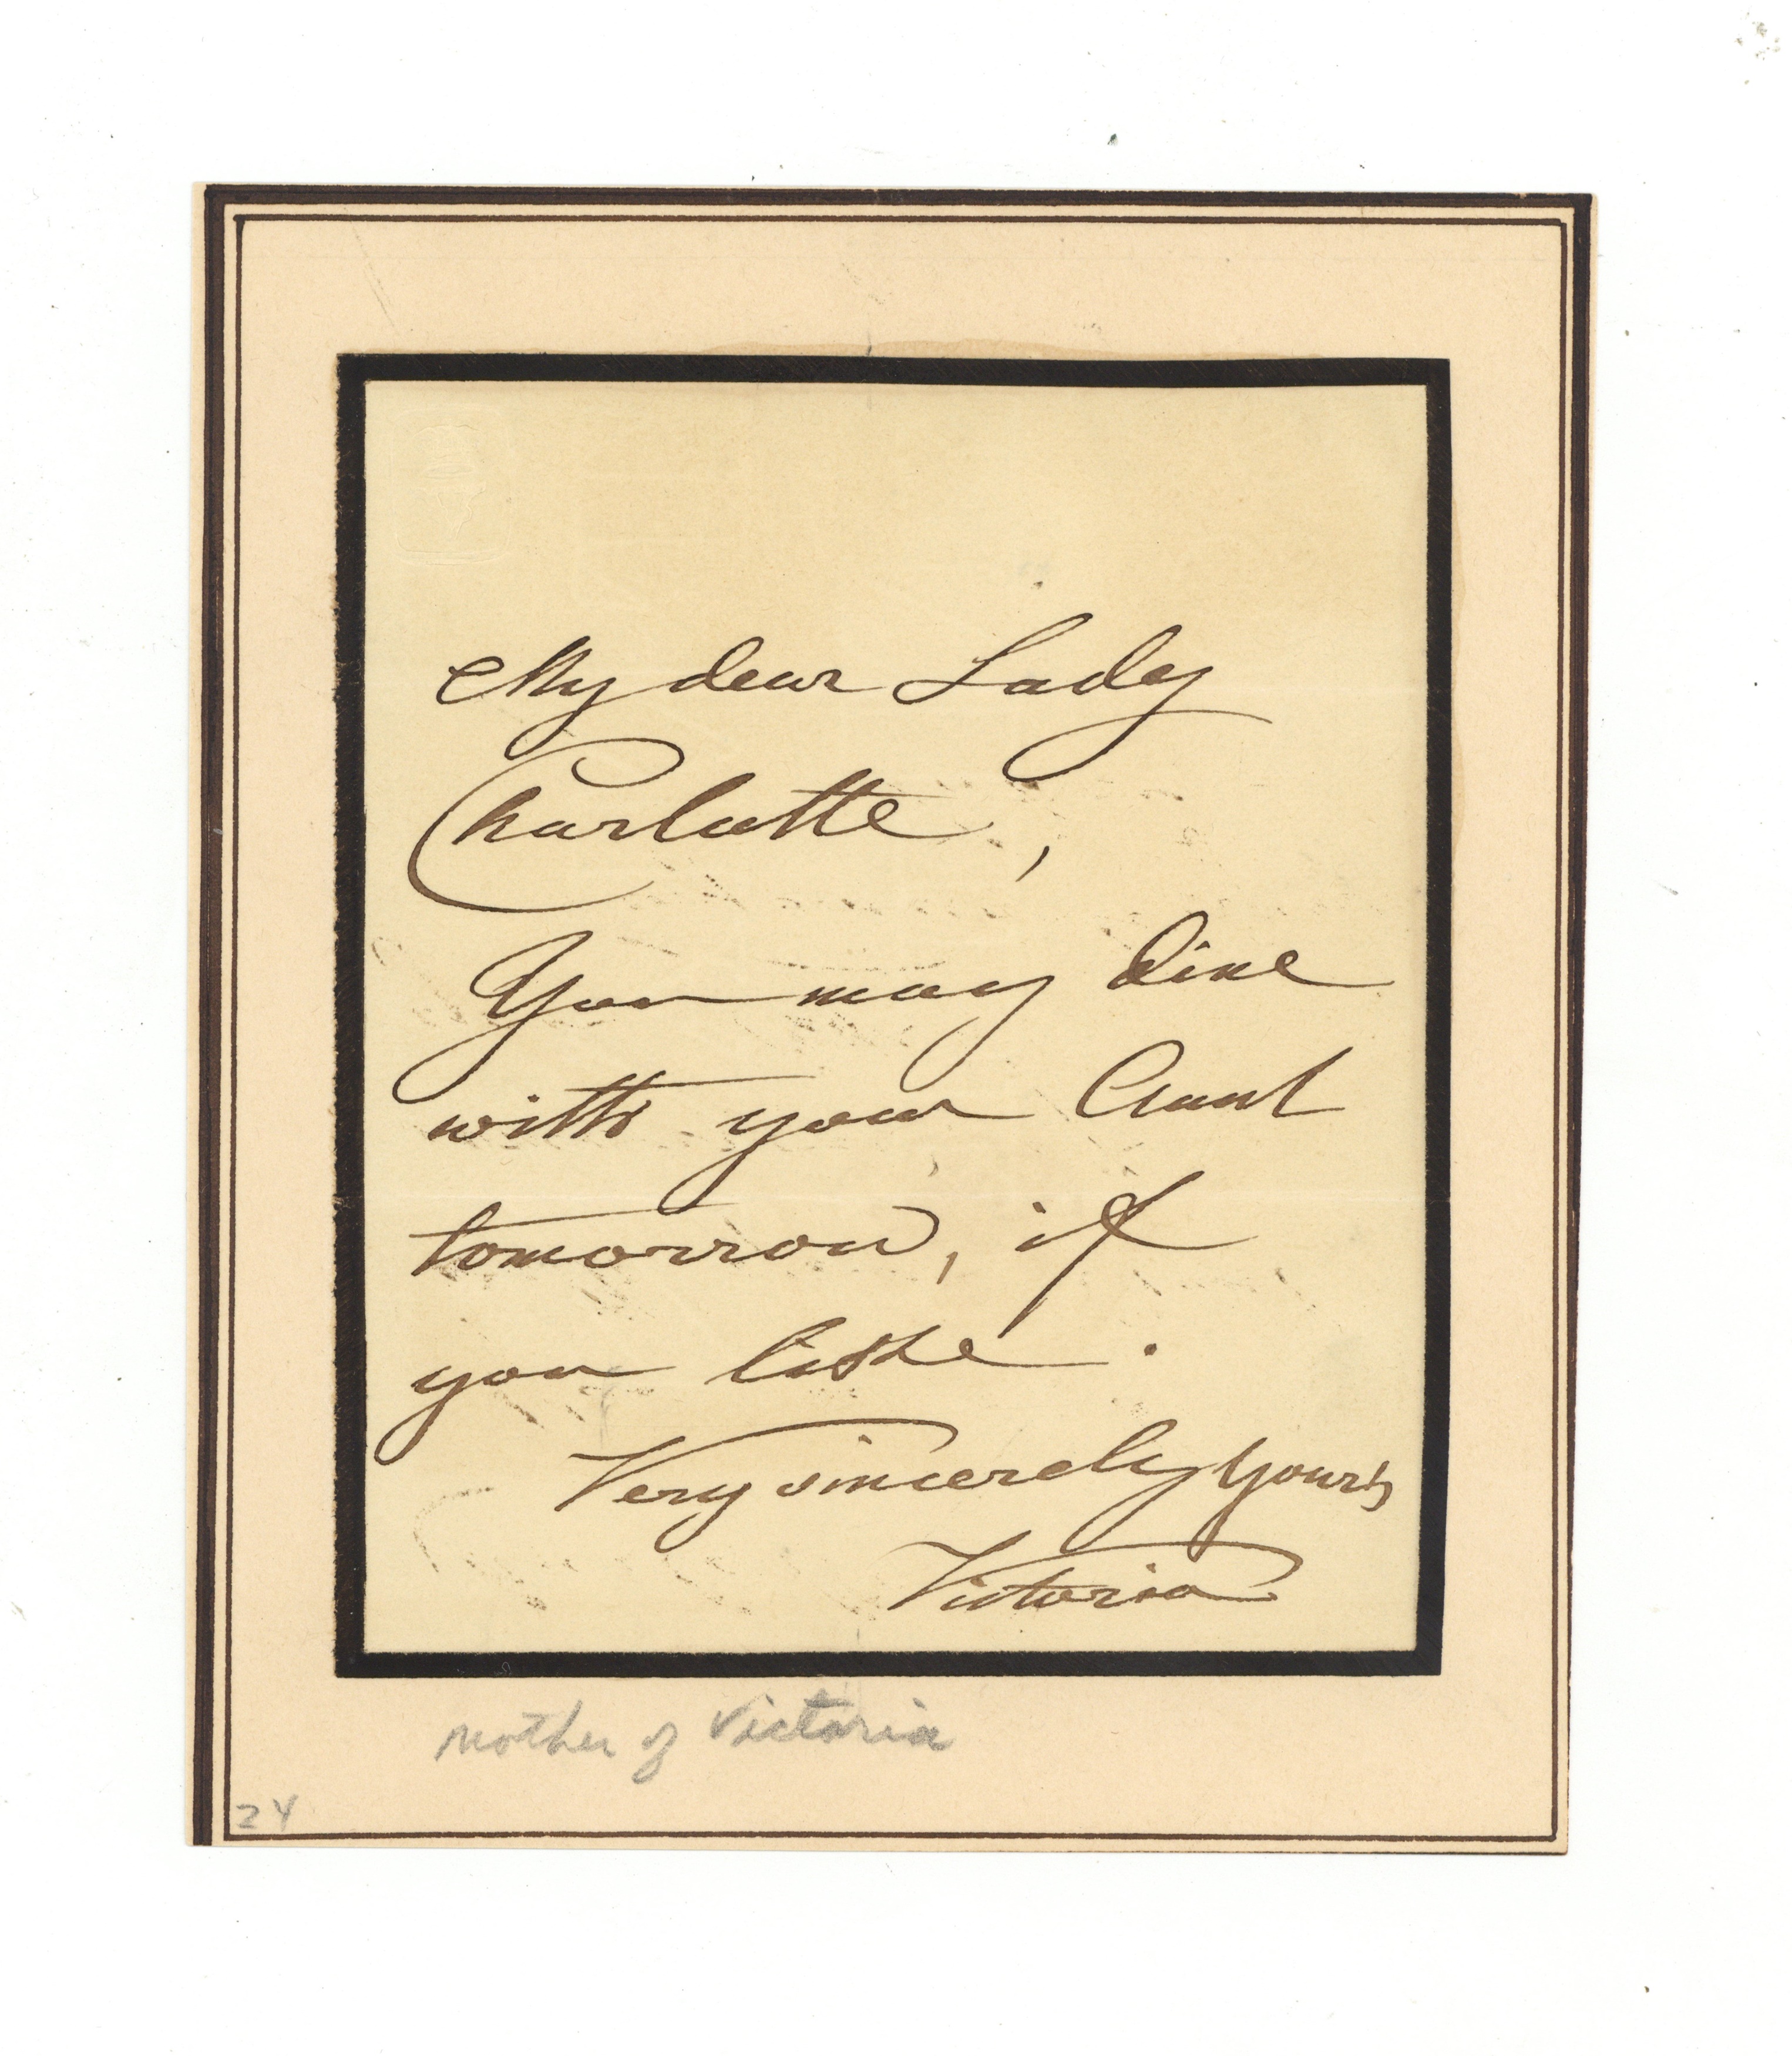 My dear Lady
Charlotte,
You may dine
with your Aunt
tomorrow, if
you like.
Very sincerely yours
Victoria
Mother of Victoria
24